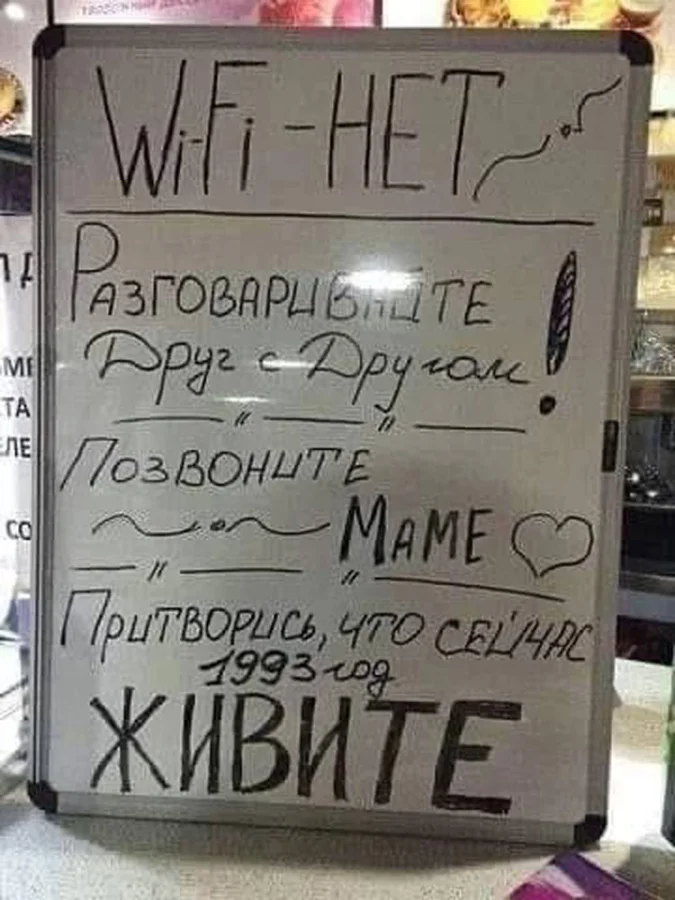 Wi-Fi - НЕТ
Разговаривайте
Друг с Другом!
Позвоните
Маме
Притворись, что сейчас
1993 год
ЖИВИТЕ